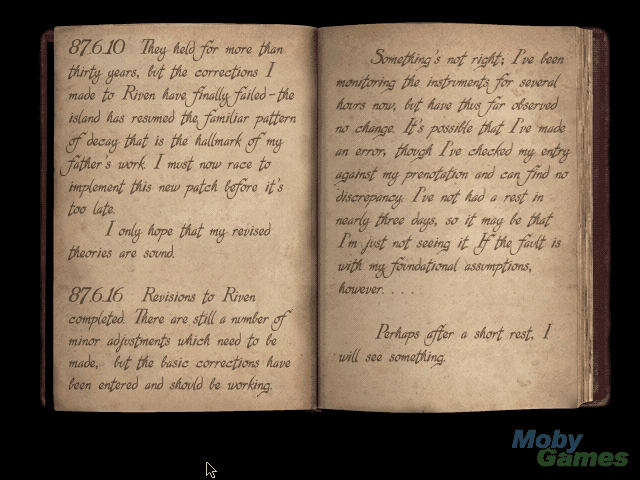 87.6.10 They held for more than
thirty years, but the corrections I
made to Riven have finally failed-the
island has resumed the familiar pattern
of decay that is the hallmark of my
father's work. I must now race to
implement this new patch before it's
too late.
I only hope that my revised
theories are sound.
87.6.16 Revisions to Riven
completed. There are still a number of
minor adjustments which need to be
made, but the basic corrections have
been entered and should be working.
Something's not right; I've been
monitoring the instruments for several
hours now, but have thus far observed
no change. It's possible that I've made
an error, though I've checked my entry
against my prenotation and can find no
discrepancy. I've not had a rest in
nearly three days, so it may be that
I'm just not seeing it. If the fault is
with my foundational assumptions,
however. . . .
Perhaps after a short rest, I
will see something.
Moby
Games